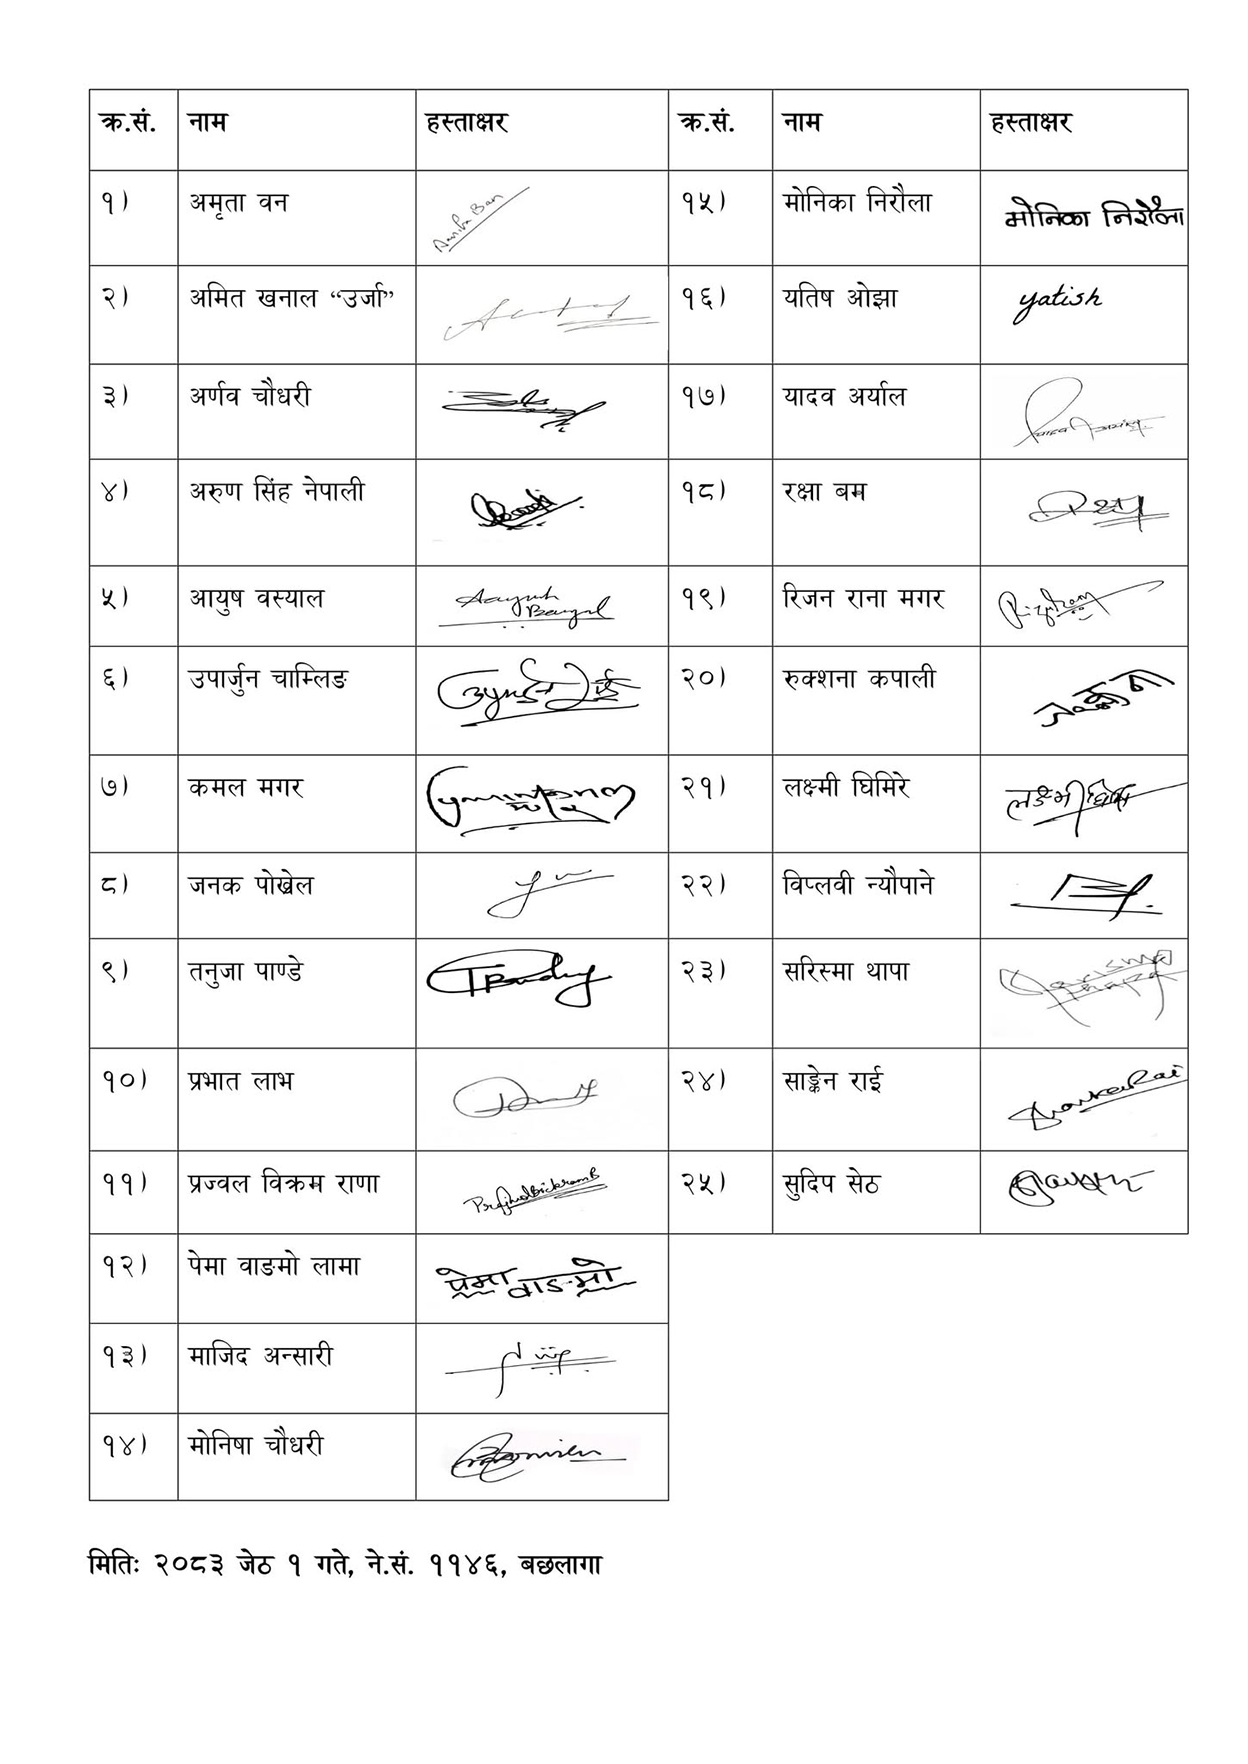 क्र.सं. नाम हस्ताक्षर क्र.सं. नाम हस्ताक्षर
१) अमृता वन १५) मोनिका निरौला मोनिका निरौला
२) अमित खनाल “उर्जा” १६) यतिष ओझा yatish
३) अर्णव चौधरी १७) यादव अर्याल
४) अरुण सिंह नेपाली १८) रक्षा बम
५) आयुष वस्याल Aayush १९) रिजन राना मगर
६) उपार्जुन चाम्लिङ २०) रुक्शना कपाली
७) कमल मगर २१) लक्ष्मी घिमिरे लक्ष्मी
८) जनक पोख्रेल २२) विप्लवी न्यौपाने
९) तनुजा पाण्डे २३) सरिस्मा थापा
१०) प्रभात लाभ २४) साङ्केन राई
११) प्रज्वल विक्रम राणा २५) सुदिप सेठ
१२) पेमा वाङमो लामा पेमा वाङमो
१३) माजिद अन्सारी
१४) मोनिषा चौधरी
मितिः २०८३ जेठ १ गते, ने.सं. ११४६, बछलागा